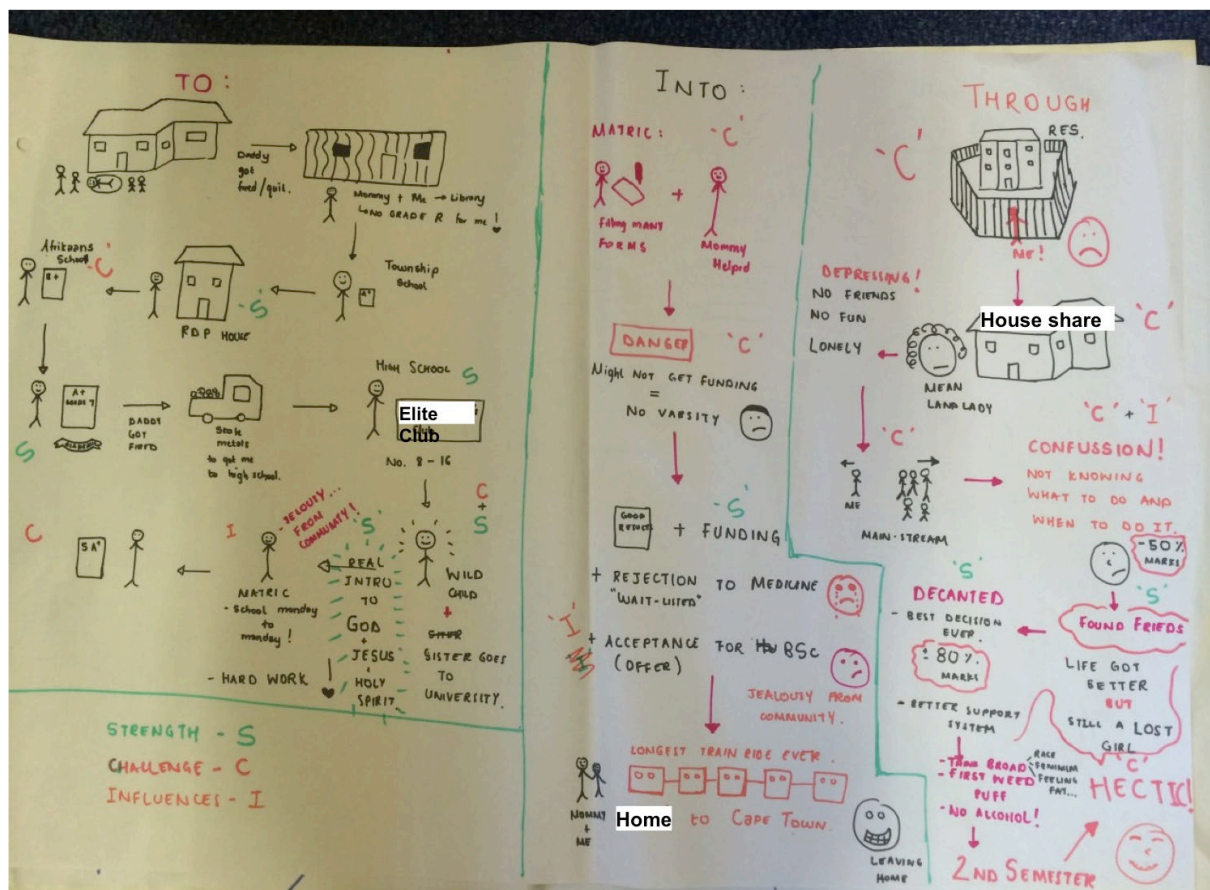 TO:
Daddy
got
fired/quit.
Mommy + Me → Library
↳ NO GRADE R for me!
Afrikaans
School
-'C'
B+
RDP HOUSE
-'S'
Township
School
A+
A+
GRADE 7
S
DADDY
GOT
FIRED
Stole
metals
to get me
to high school.
HIGH SCHOOL
S
Elite
Club
No. 8 - 16
C
+
S
WILD
CHILD
+
SISTER GOES
TO
UNIVERSITY.
'S'
REAL
INTRO
TO
GOD
+
JESUS
+
HOLY
SPIRIT
- JELOUSY...
FROM
COMMUNITY!
I
MATRIC
- School monday
to
monday!
- HARD WORK
C
5 A+
STRENGTH - S
CHALLENGE - C
INFLUENCES - I
INTO:
MATRIC:
'C'
Filling MANY
FORMS
+
Mommy
Helped
DANGER
'C'
Might NOT GET FUNDING
=
NO VARSITY
-'S'
GOOD
RESULTS
+ FUNDING
+ REJECTION TO MEDICINE
"WAIT-LISTED"
'I'
+ ACCEPTANCE FOR BSc
(OFFER)
JEALOUSY FROM
COMMUNITY.
LONGEST TRAIN RIDE EVER.
MOMMY
+
ME
Home to CAPE TOWN.
LEAVING
HOME
THROUGH
-'C'
RES.
ME!
House share
'C'
MEAN
LANDLADY
DEPRESSING!
NO FRIENDS
NO FUN
LONELY
'C'
ME
MAIN-STREAM
'C' + 'I'
CONFUSSION!
NOT KNOWING
WHAT TO DO AND
WHEN TO DO IT.
-50%
MARKS
'S'
FOUND FRIEDS
LIFE GOT
BETTER
BUT
STILL A LOST
GIRL
'S'
DECANTED
- BEST DECISION
EVER.
± 80%
MARKS
- BETTER SUPPORT
SYSTEM
- THINK BROAD
RACE
FEMINISM
FEELING
FAT...
- FIRST WEED
PUFF
- NO ALCOHOL!
2ND SEMESTER
'C'
HECTIC!